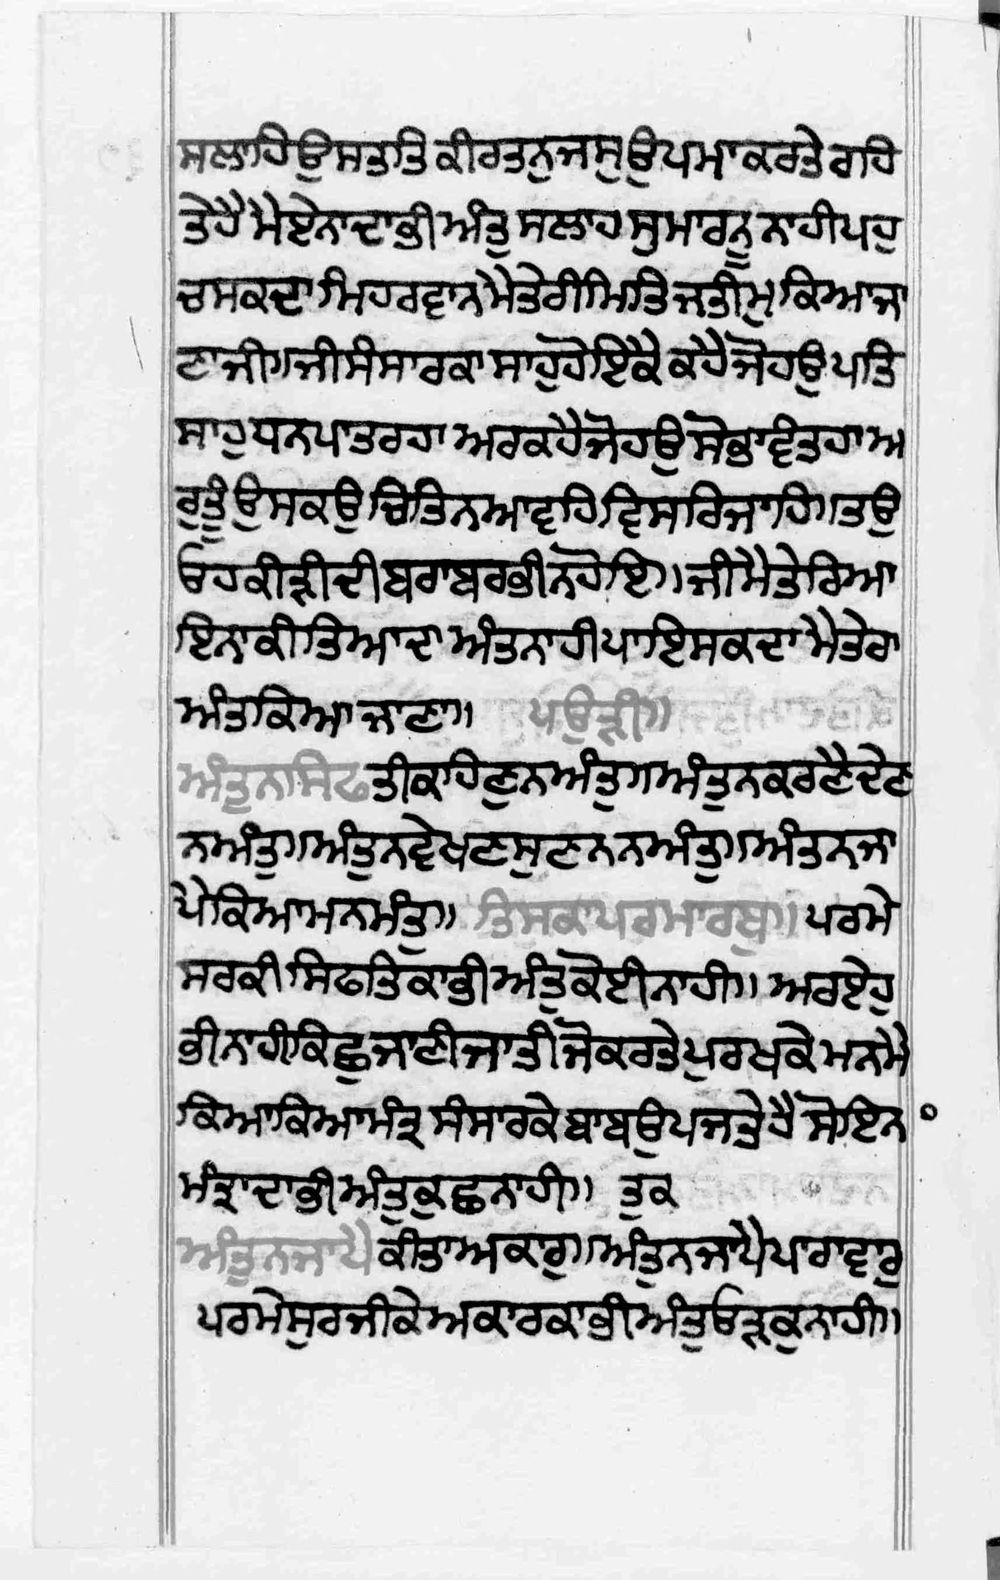 ਸਲਾਹਿਉਸਤਤਿਕੀਰਤਨੁਜਸੁਉਪਮਾਕਰਤੇਰਹਿ
ਤੇਹੈਮੈਏਨਾਦਾਭੀਅੰਤੁਸਲਾਹਸੁਮਾਰਨੂੰਨਾਹੀਪਹੁ
ਚਸਕਦਾਮਿਹਰਵਾਨਮੈਤੇਰੀਮਿਤਿਜਤੀਮੁਕਿਆਜਾ
ਣਾਜੀ॥ਜੀਸੰਸਾਰਕਾਸਾਹੁਹੋਇਕੈਕਹੈਜੋਹਉਪਤਿ
ਸਾਹੁਧਨਪਾਤਰਹਾਅਰਕਹੈਜੋਹਉਸੋਭਾਵੰਤਹਾਅ
ਰੁਤੂੰਉਸਕਉਚਿਤਿਨਆਵਹਿਵਿਸਰਿਜਾਹਿ॥ਤਉ
ਓਹਕੀੜੀਦੀਬਰਾਬਰਭੀਨਹੋਇ॥ਜੀਮੈਤੇਰਿਆ
ਇਨਾਕੀਤਿਆਦਾਅੰਤਨਾਹੀਪਾਇਸਕਦਾਮੈਤੇਰਾ
ਅੰਤਕਿਆਜਾਣਾ॥ ਪਉੜੀ॥
ਅੰਤੁਨਾਸਿਫਤੀਕਾਹਿਣੁਨਅੰਤੁ॥ਅੰਤੁਨਕਰਣੈਦੇਣ
ਨਅੰਤੁ॥ਅੰਤੁਨਵੇਖਣਸੁਣਨਨਅੰਤੁ॥ਅੰਤਨਜਾ
ਪੈਕਿਆਮਨਮੰਤੁ॥ ਤਿਸਕਾਪਰਮਾਰਥੁ॥ਪਰਮੇ
ਸਰਕੀਸਿਫਤਿਕਾਭੀਅੰਤੁਕੋਈਨਾਹੀ॥ਅਰਏਹੁ
ਭੀਨਾਹੀਕਿਛੁਜਾਣੀਜਾਤੀਜੋਕਰਤੇਪੁਰਖਕੇਮਨਮੈ
ਕਿਆਕਿਆਮੰਤ੍ਰਸੰਸਾਰਕੇਬਾਬਉਪਜਤੇਹੈਸੋਇਨ
ਮੰਤ੍ਰਾਦਾਭੀਅੰਤੁਕੁਛਨਾਹੀ॥ ਤੁਕ
ਅੰਤੁਨਜਾਪੈਕੀਤਾਅਕਾਰੁ॥ਅੰਤੁਨਜਾਪੈਪਾਰਾਵਾਰੁ
ਪਰਮੇਸੁਰਜੀਕੇਅਕਾਰਕਾਭੀਅੰਤੁਓੜਕੁਨਾਹੀ॥